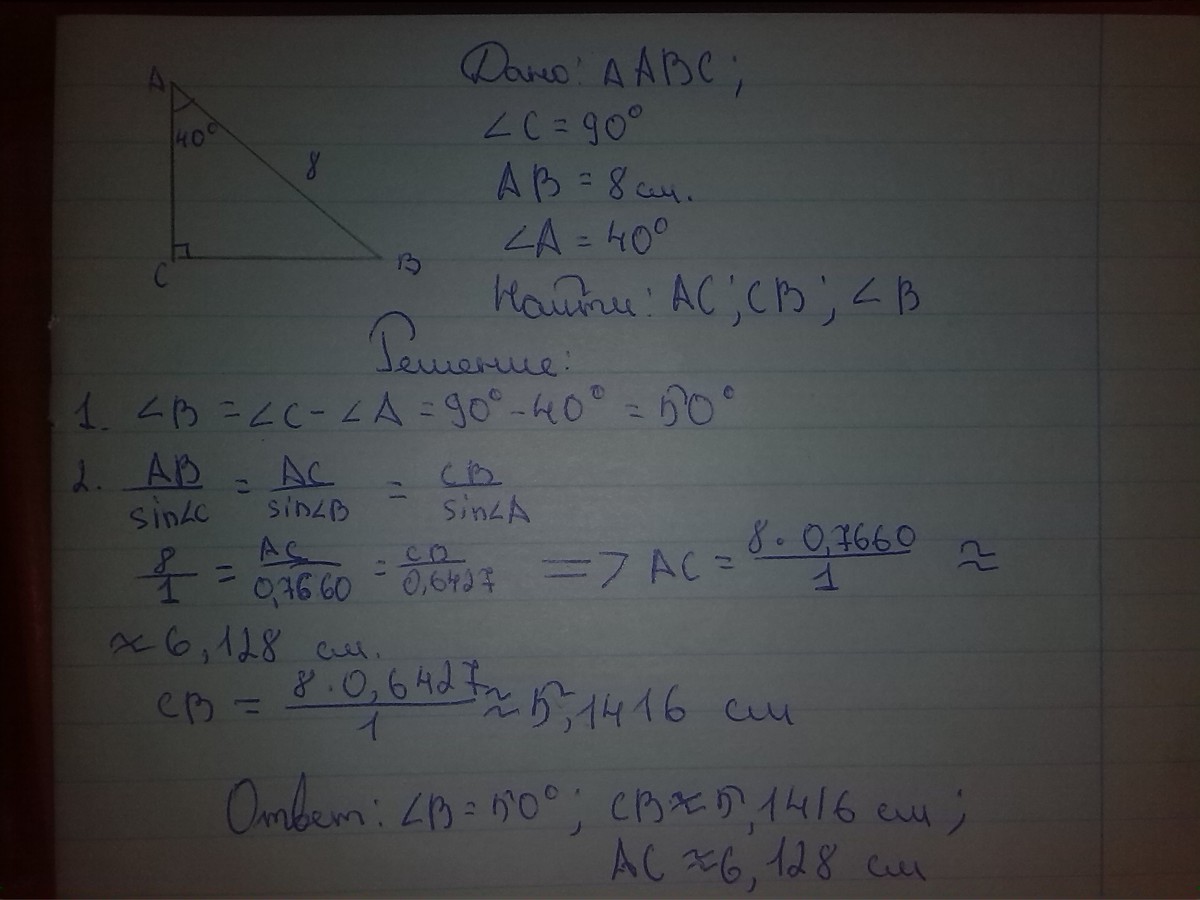 A
40°
8
C
B
Дано: △ABC;
∠C = 90°
AB = 8 см.
∠A = 40°
Найти: AC; CB; ∠B
Решение:
1. ∠B = ∠C - ∠A = 90° - 40° = 50°
2. AB/sin∠C = AC/sin∠B = CB/sin∠A
8/1 = AC/0,7660 = CB/0,6427 => AC = 8·0,7660/1 ≈
≈ 6,128 см.
CB = 8·0,6427/1 ≈ 5,1416 см
Ответ: ∠B = 50°; CB ≈ 5,1416 см;
AC ≈ 6,128 см